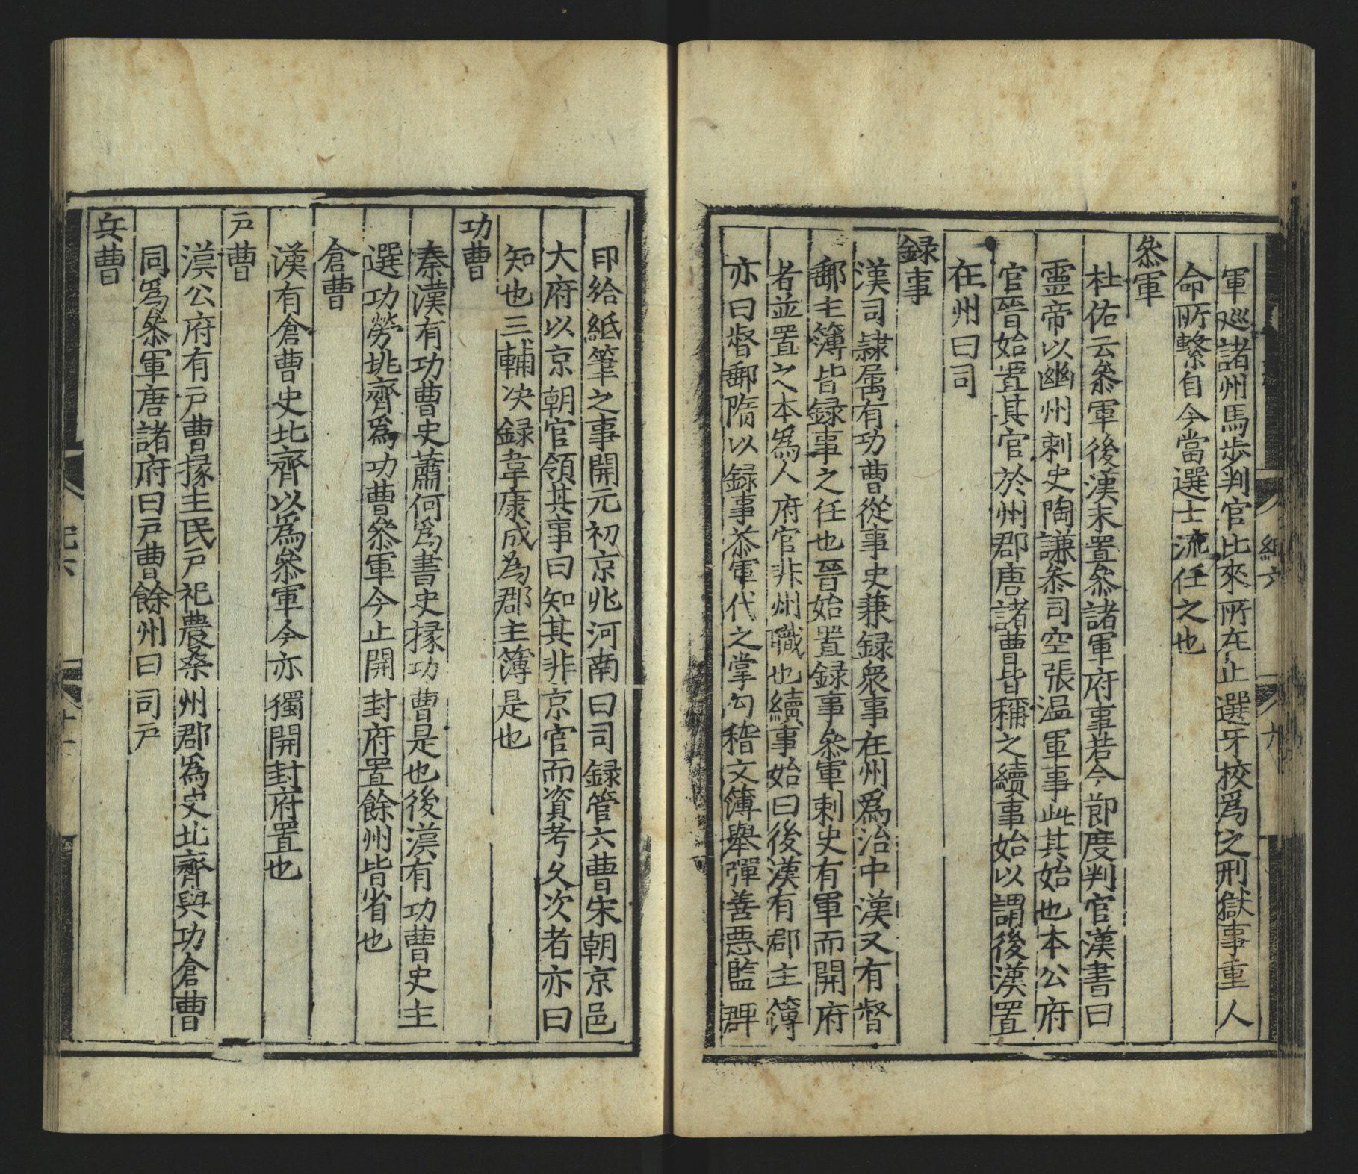 軍廵諸州馬歩判官比來所在止選牙校爲之刑獄事重人
命所繫自今當選士流任之也
叅軍
杜佑云叅軍後漢末置叅諸軍府事若今節度判官漢書曰
靈帝以幽州刺史陶謙叅司空張温軍事此其始也本公府
官晉始置其官於州郡唐諸曹皆稱之續事始以謂後漢置
在州曰司
録事
漢司隷属有功曹從事史兼録衆事在州爲治中漢又有督
郵主簿皆録事之任也晉始置録事叅軍刺史有軍而開府
者並置之本爲人府官非州職也續事始曰後漢有郡主簿
亦曰督郵隋以録事叅軍代之掌勾稽文簿舉彈善惡監
印給紙筆之事開元初京兆河南曰司録管六曹宋朝京邑
大府以京朝官領其事曰知其非京官而資考久次者亦曰
知也三輔决録韋康成為郡主簿是也
功曹
秦漢有功曹史蕭何爲書史掾功曹是也後漢有功曹史主
選功勞北齊爲功曹叅軍今止開封府置餘州皆省也
倉曹
漢有倉曹史北齊以爲叅軍今亦獨開封府置也
戸曹
漢公府有戸曹掾主民戸祀農桒州郡爲史北齊與功倉曹
同爲叅軍唐諸府曰戸曹餘州曰司戸
兵曹
紀六
九